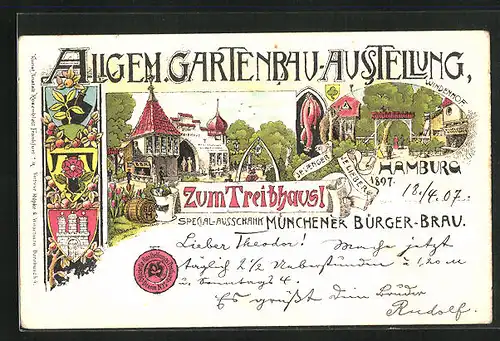 ALLGEM. GARTENBAU-AUSSTELLUNG,
LINDENHOF
HAMBURG
1897.
18./4. 07.
Zum Treibhaus!
SPECIAL-AUSSCHANK MÜNCHENER BÜRGER-BRAU.
Lieber Theodor! Mache jetzt
täglich 2 1/2 Ueberstunden à 1,20 M
u. Sonntags 4.
Es grüßt Dein Bruder
Rudolf.